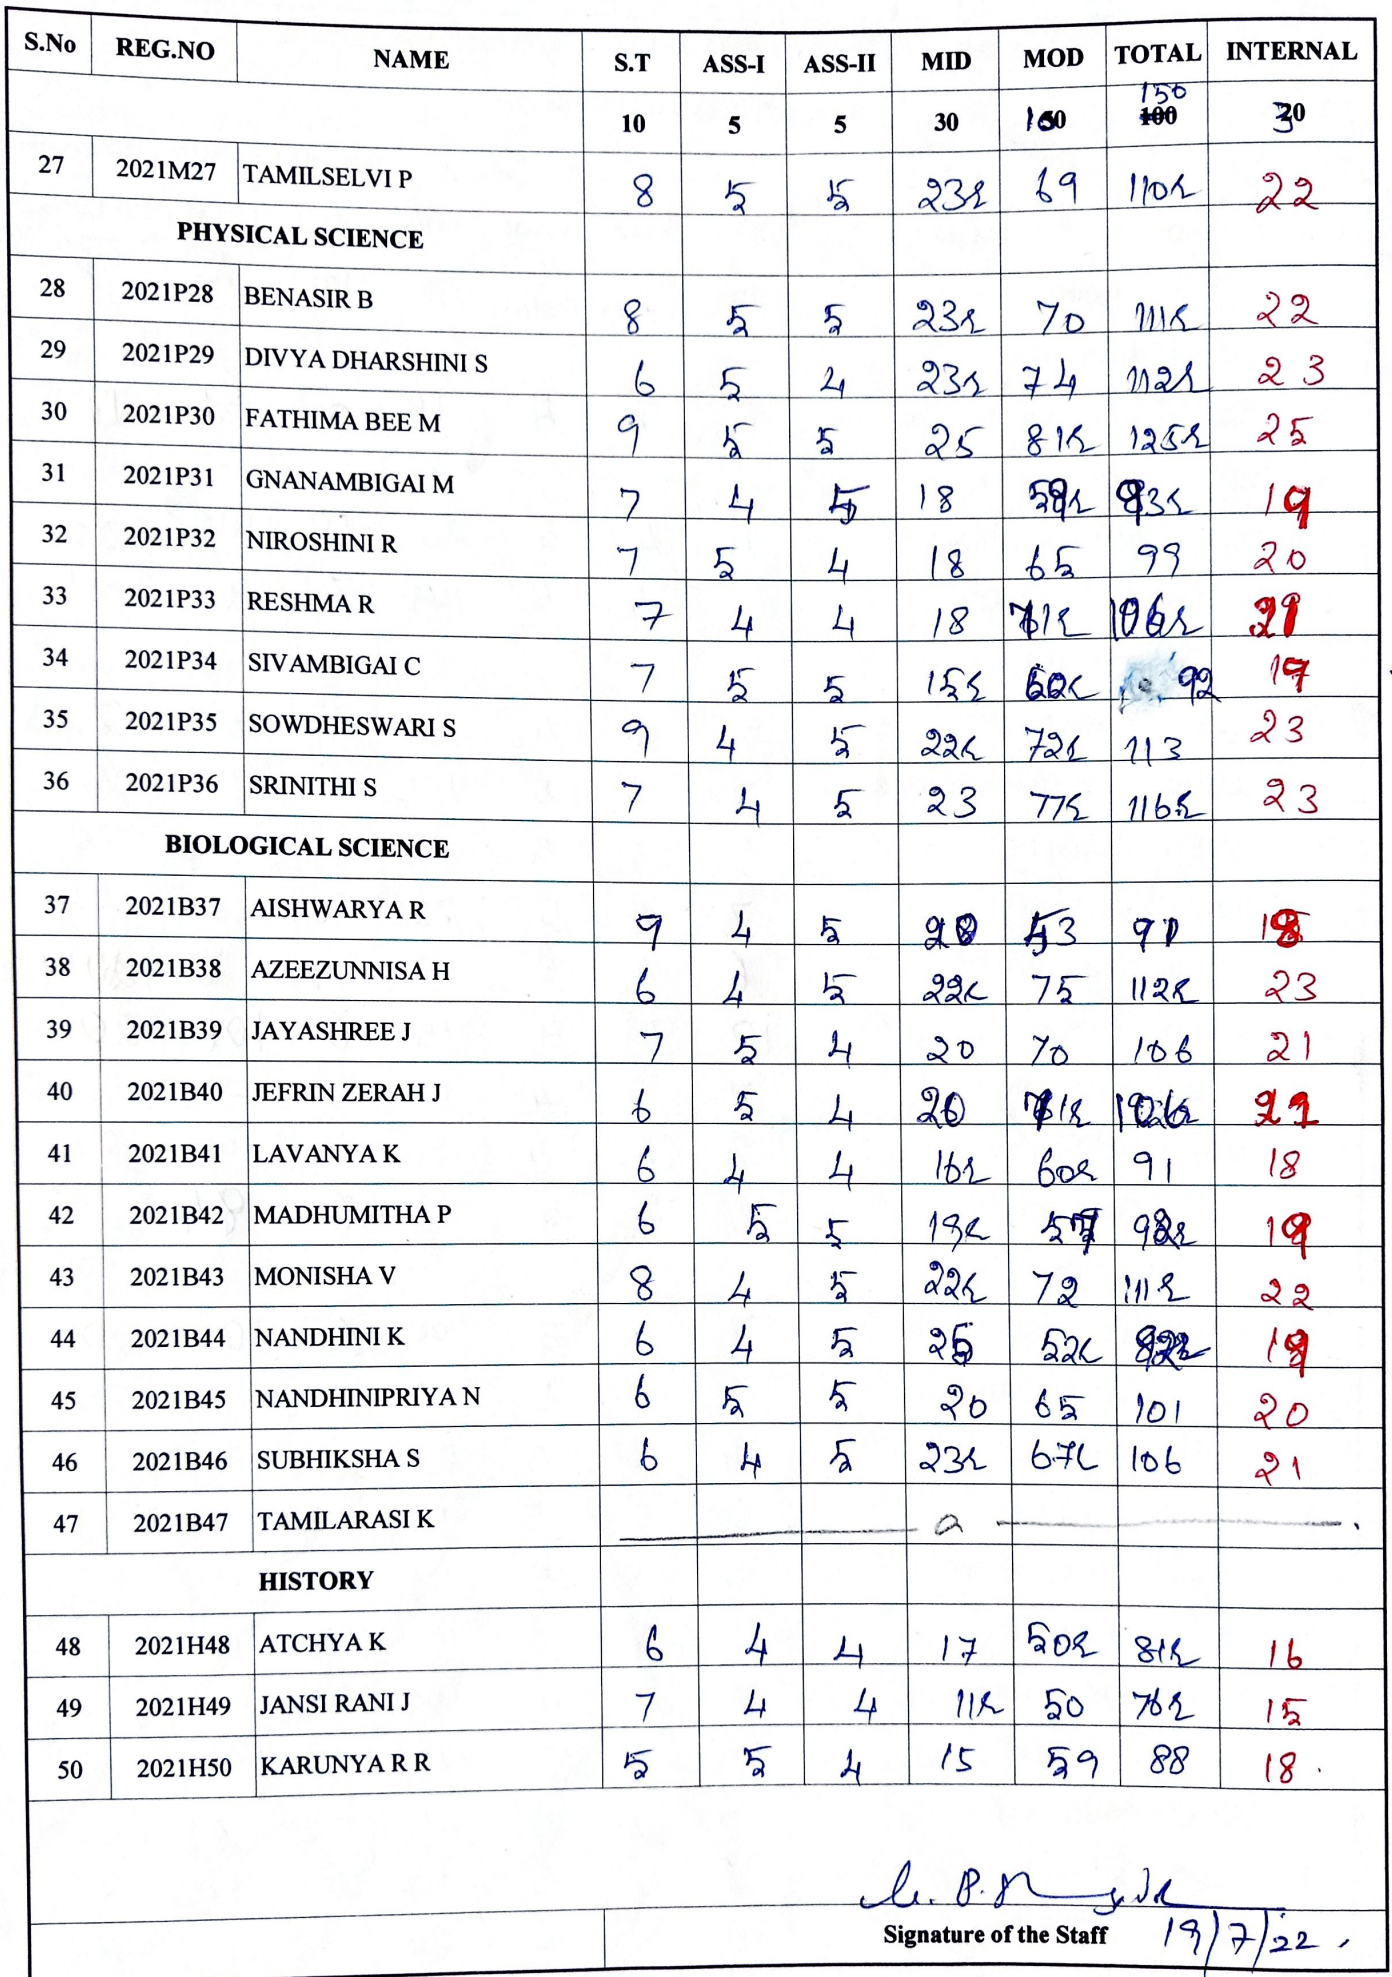 S.No REG.NO NAME S.T ASS-I ASS-II MID MOD TOTAL INTERNAL
10 5 5 30 100 150 30
27 2021M27 TAMILSELVI P 8 5 5 23½ 69 110½ 22
PHYSICAL SCIENCE
28 2021P28 BENASIR B 8 5 5 23½ 70 111½ 22
29 2021P29 DIVYA DHARSHINI S 6 5 4 23½ 74 112½ 23
30 2021P30 FATHIMA BEE M 9 5 5 25 81½ 125½ 25
31 2021P31 GNANAMBIGAI M 7 4 5 18 59½ 93½ 19
32 2021P32 NIROSHINI R 7 5 4 18 65 99 20
33 2021P33 RESHMA R 7 4 4 18 71½ 21
34 2021P34 SIVAMBIGAI C 7 5 5 15½ 92 17
35 2021P35 SOWDHESWARI S 9 4 5 22½ 72½ 113 23
36 2021P36 SRINITHI S 7 4 5 23 77½ 116½ 23
BIOLOGICAL SCIENCE
37 2021B37 AISHWARYA R 9 4 5 20 53 91 18
38 2021B38 AZEEZUNNISA H 6 4 5 22½ 75 112½ 23
39 2021B39 JAYASHREE J 7 5 4 20 70 106 21
40 2021B40 JEFRIN ZERAH J 6 5 4 20 71½ 21
41 2021B41 LAVANYA K 6 4 4 16½ 60½ 91 18
42 2021B42 MADHUMITHA P 6 5 5 19½ 57 19
43 2021B43 MONISHA V 8 4 5 22½ 72 111½ 22
44 2021B44 NANDHINI K 6 4 5 25 52½ 92½ 19
45 2021B45 NANDHINIPRIYA N 6 5 5 20 65 101 20
46 2021B46 SUBHIKSHA S 6 4 5 23½ 67½ 106 21
47 2021B47 TAMILARASI K a
HISTORY
48 2021H48 ATCHYA K 6 4 4 17 50½ 81½ 16
49 2021H49 JANSI RANI J 7 4 4 11½ 50 76½ 15
50 2021H50 KARUNYA R R 5 5 4 15 59 88 18
Signature of the Staff 19/7/22